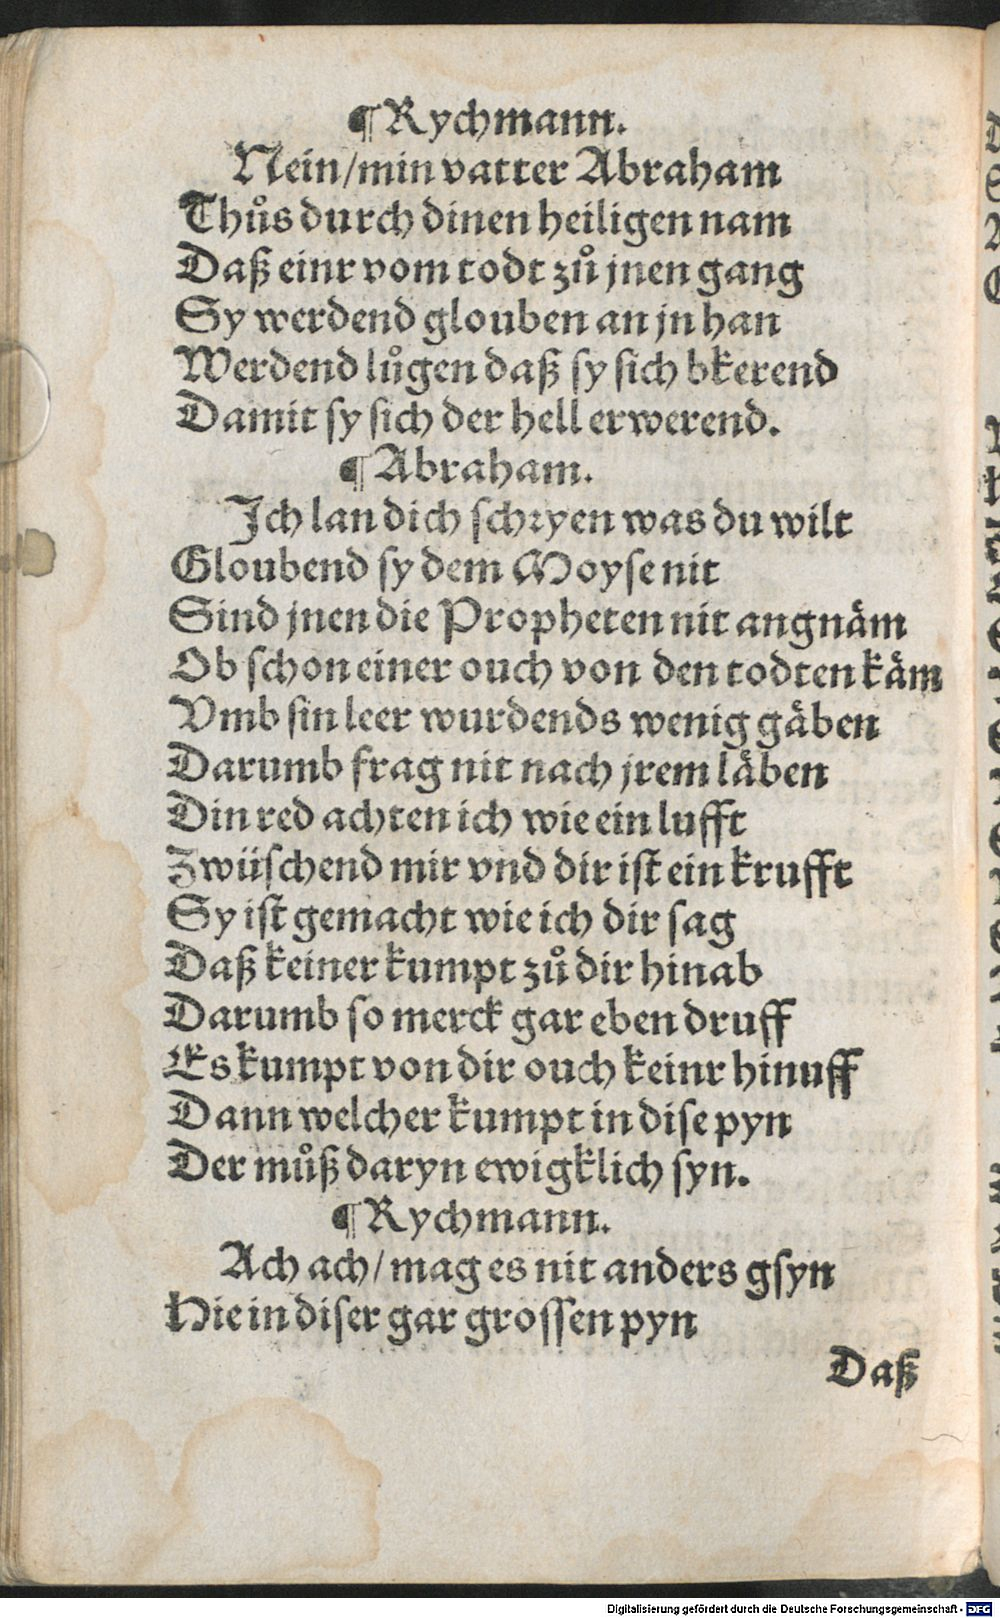 ¶Rychmann.
Nein/min vatter Abraham
Thůs durch dinen heiligen nam
Daß einr vom todt zů jnen gang
Sy werdend glouben an jn han
Werdend lůgen daß sy sich bkerend
Damit sy sich der hell erwerend.
¶Abraham.
Ich lan dich schryen was du wilt
Gloubend sy dem Moyse nit
Sind jnen die Propheten nit angnåm
Ob schon einer ouch von den todten kåm
Vmb sin leer wurdends wenig gåben
Darumb frag nit nach jrem låben
Din red achten ich wie ein lufft
Zwüschend mir vnd dir ist ein krufft
Sy ist gemacht wie ich dir sag
Daß keiner kumpt zů dir hinab
Darumb so merck gar eben druff
Es kumpt von dir ouch keinr hinuff
Dann welcher kumpt in dise pyn
Der můß daryn ewigklich syn.
¶Rychmann.
Ach ach/mag es nit anders gsyn
Hie in diser gar grossen pyn
Daß
Digitalisierung gefördert durch die Deutsche Forschungsgemeinschaft - DFG